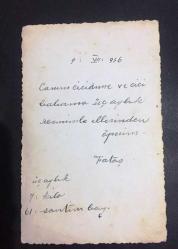 9. VII. 956
Canım cicidime ve cici
babama üç aylık
resmimle ellerinden
öperim.
üç aylık
7. kilo
61. santim boy